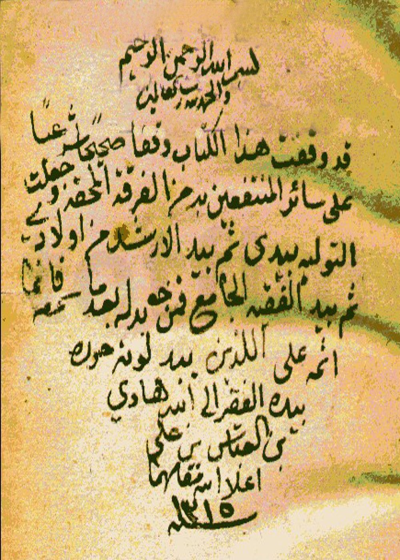 بسم الله الرحمن الرحيم
والحمد لله رب العالمين
قد وقفت هذا الكتاب وقفا صحيحا شرعيا
على سائر المنتفعين به من الفرقة المحقة وجعلت
التولية بيدي ثم بيد الارشد من اولادي
ثم بيد الفقيه الجامع فمن بدله بعد ما سمعه فانما
اثمه على الذين يبدلونه حرره
بيده الفقير الى الله هادي
بن العباس بن علي
اعلا الله مقامهما
سنة ١٣١٥